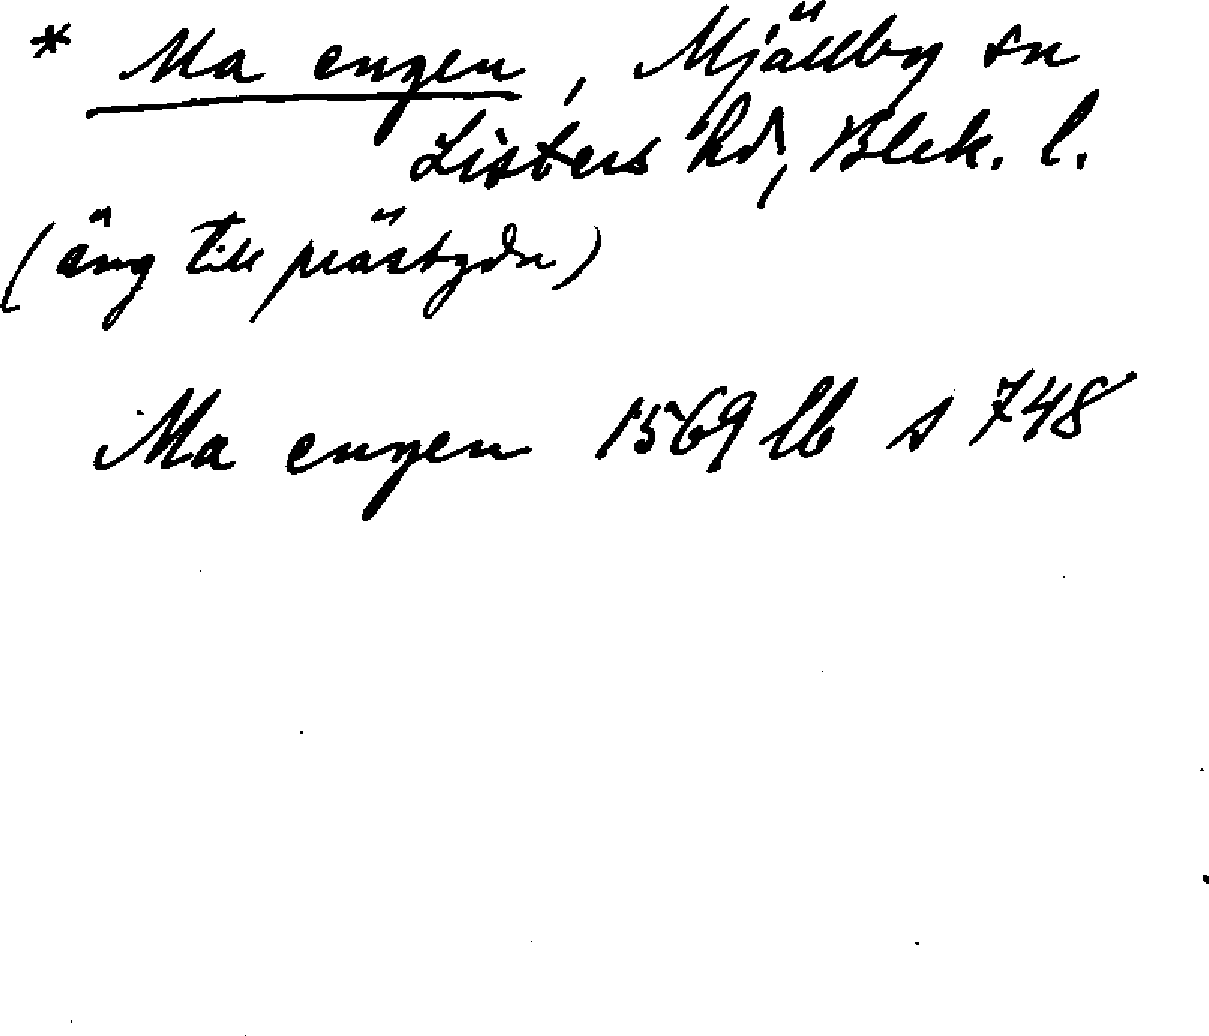 * Ma engen, Mjällby sn
Listers hd, Blek. l.
(äng till prästgdn)
Ma engen 1569 lb s 748